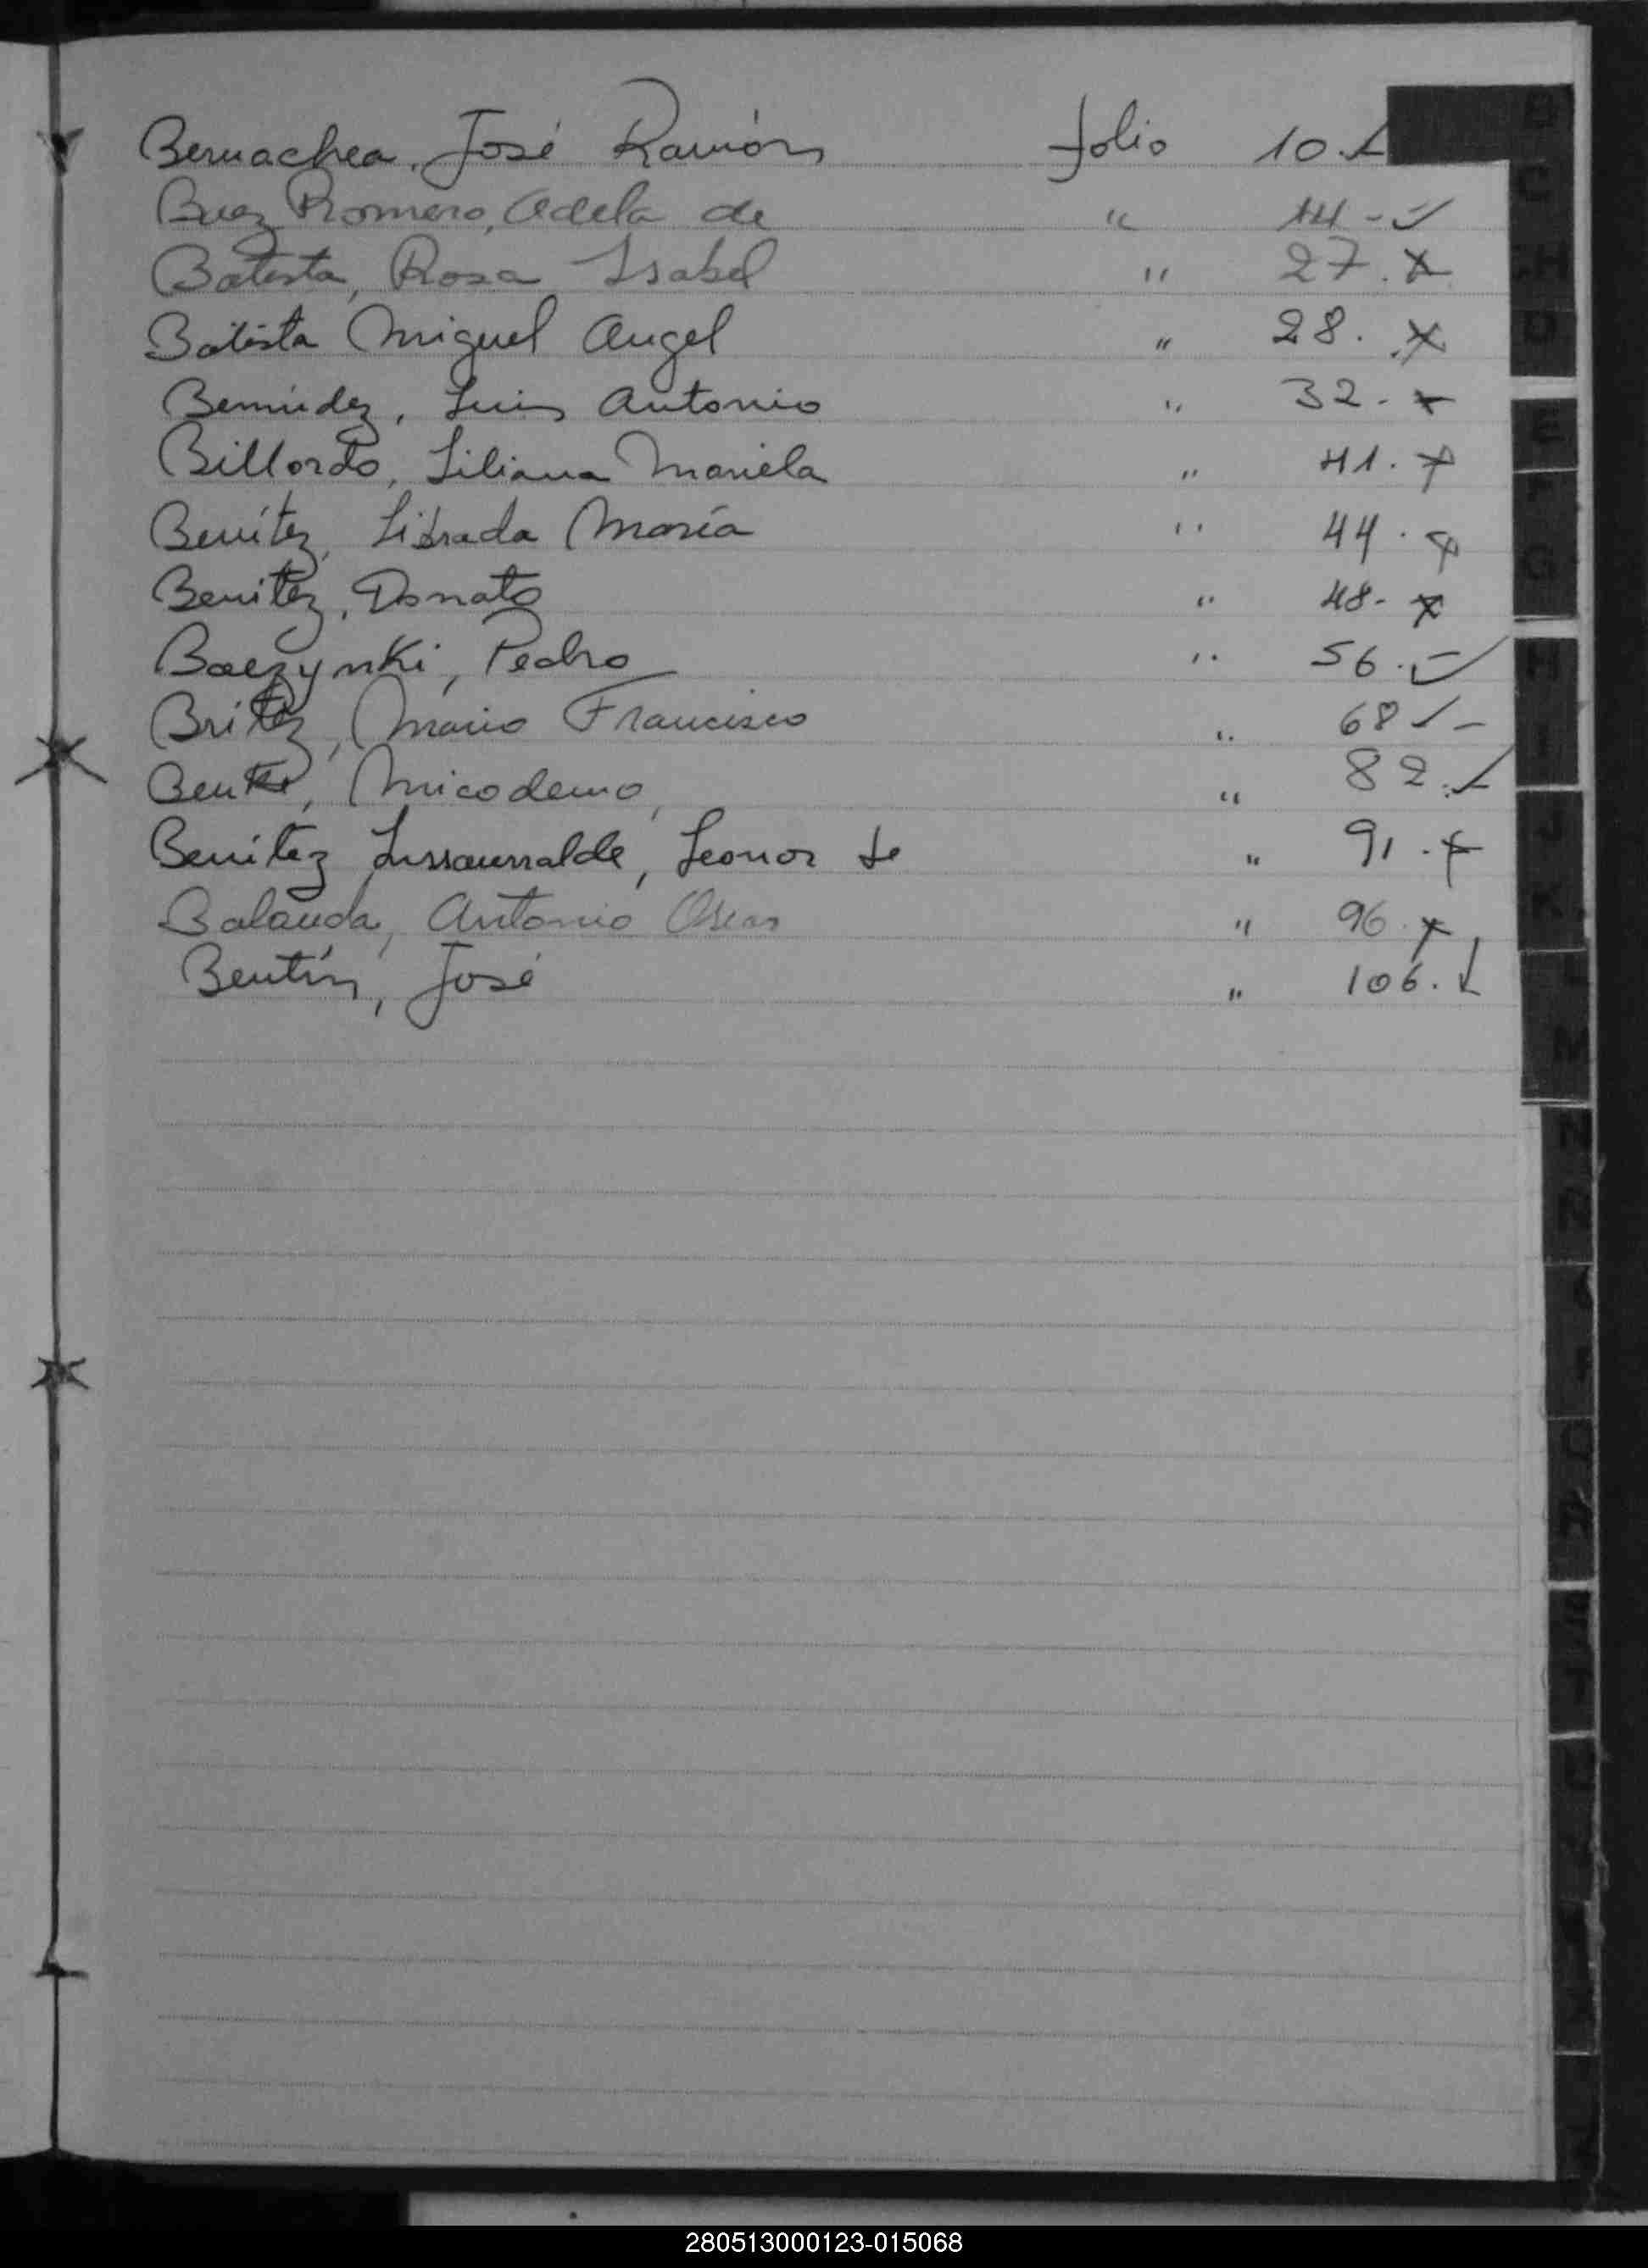 Bernachea, José Ramón folio 10.
Baez Romero, Adela de " 14 -
Batista, Rosa Isabel " 27.
Batista Miguel Angel " 28.
Bermúdez, Luis Antonio " 32.
Billordo, Liliana Mariela " 41.
Benítez, Librada María " 44.
Benitez, Donato " 48-
Baczynki, Pedro " 56.
Britez, Mario Francisco " 68
Micodemo, " 82.
Benitez Lussaurralde, Leonor de " 91.
Balanda, Antonio Oscar " 96.
Bentín, José " 106.
B
C
CH
D
E
F
G
H
I
J
K
L
M
N
280513000123-015068